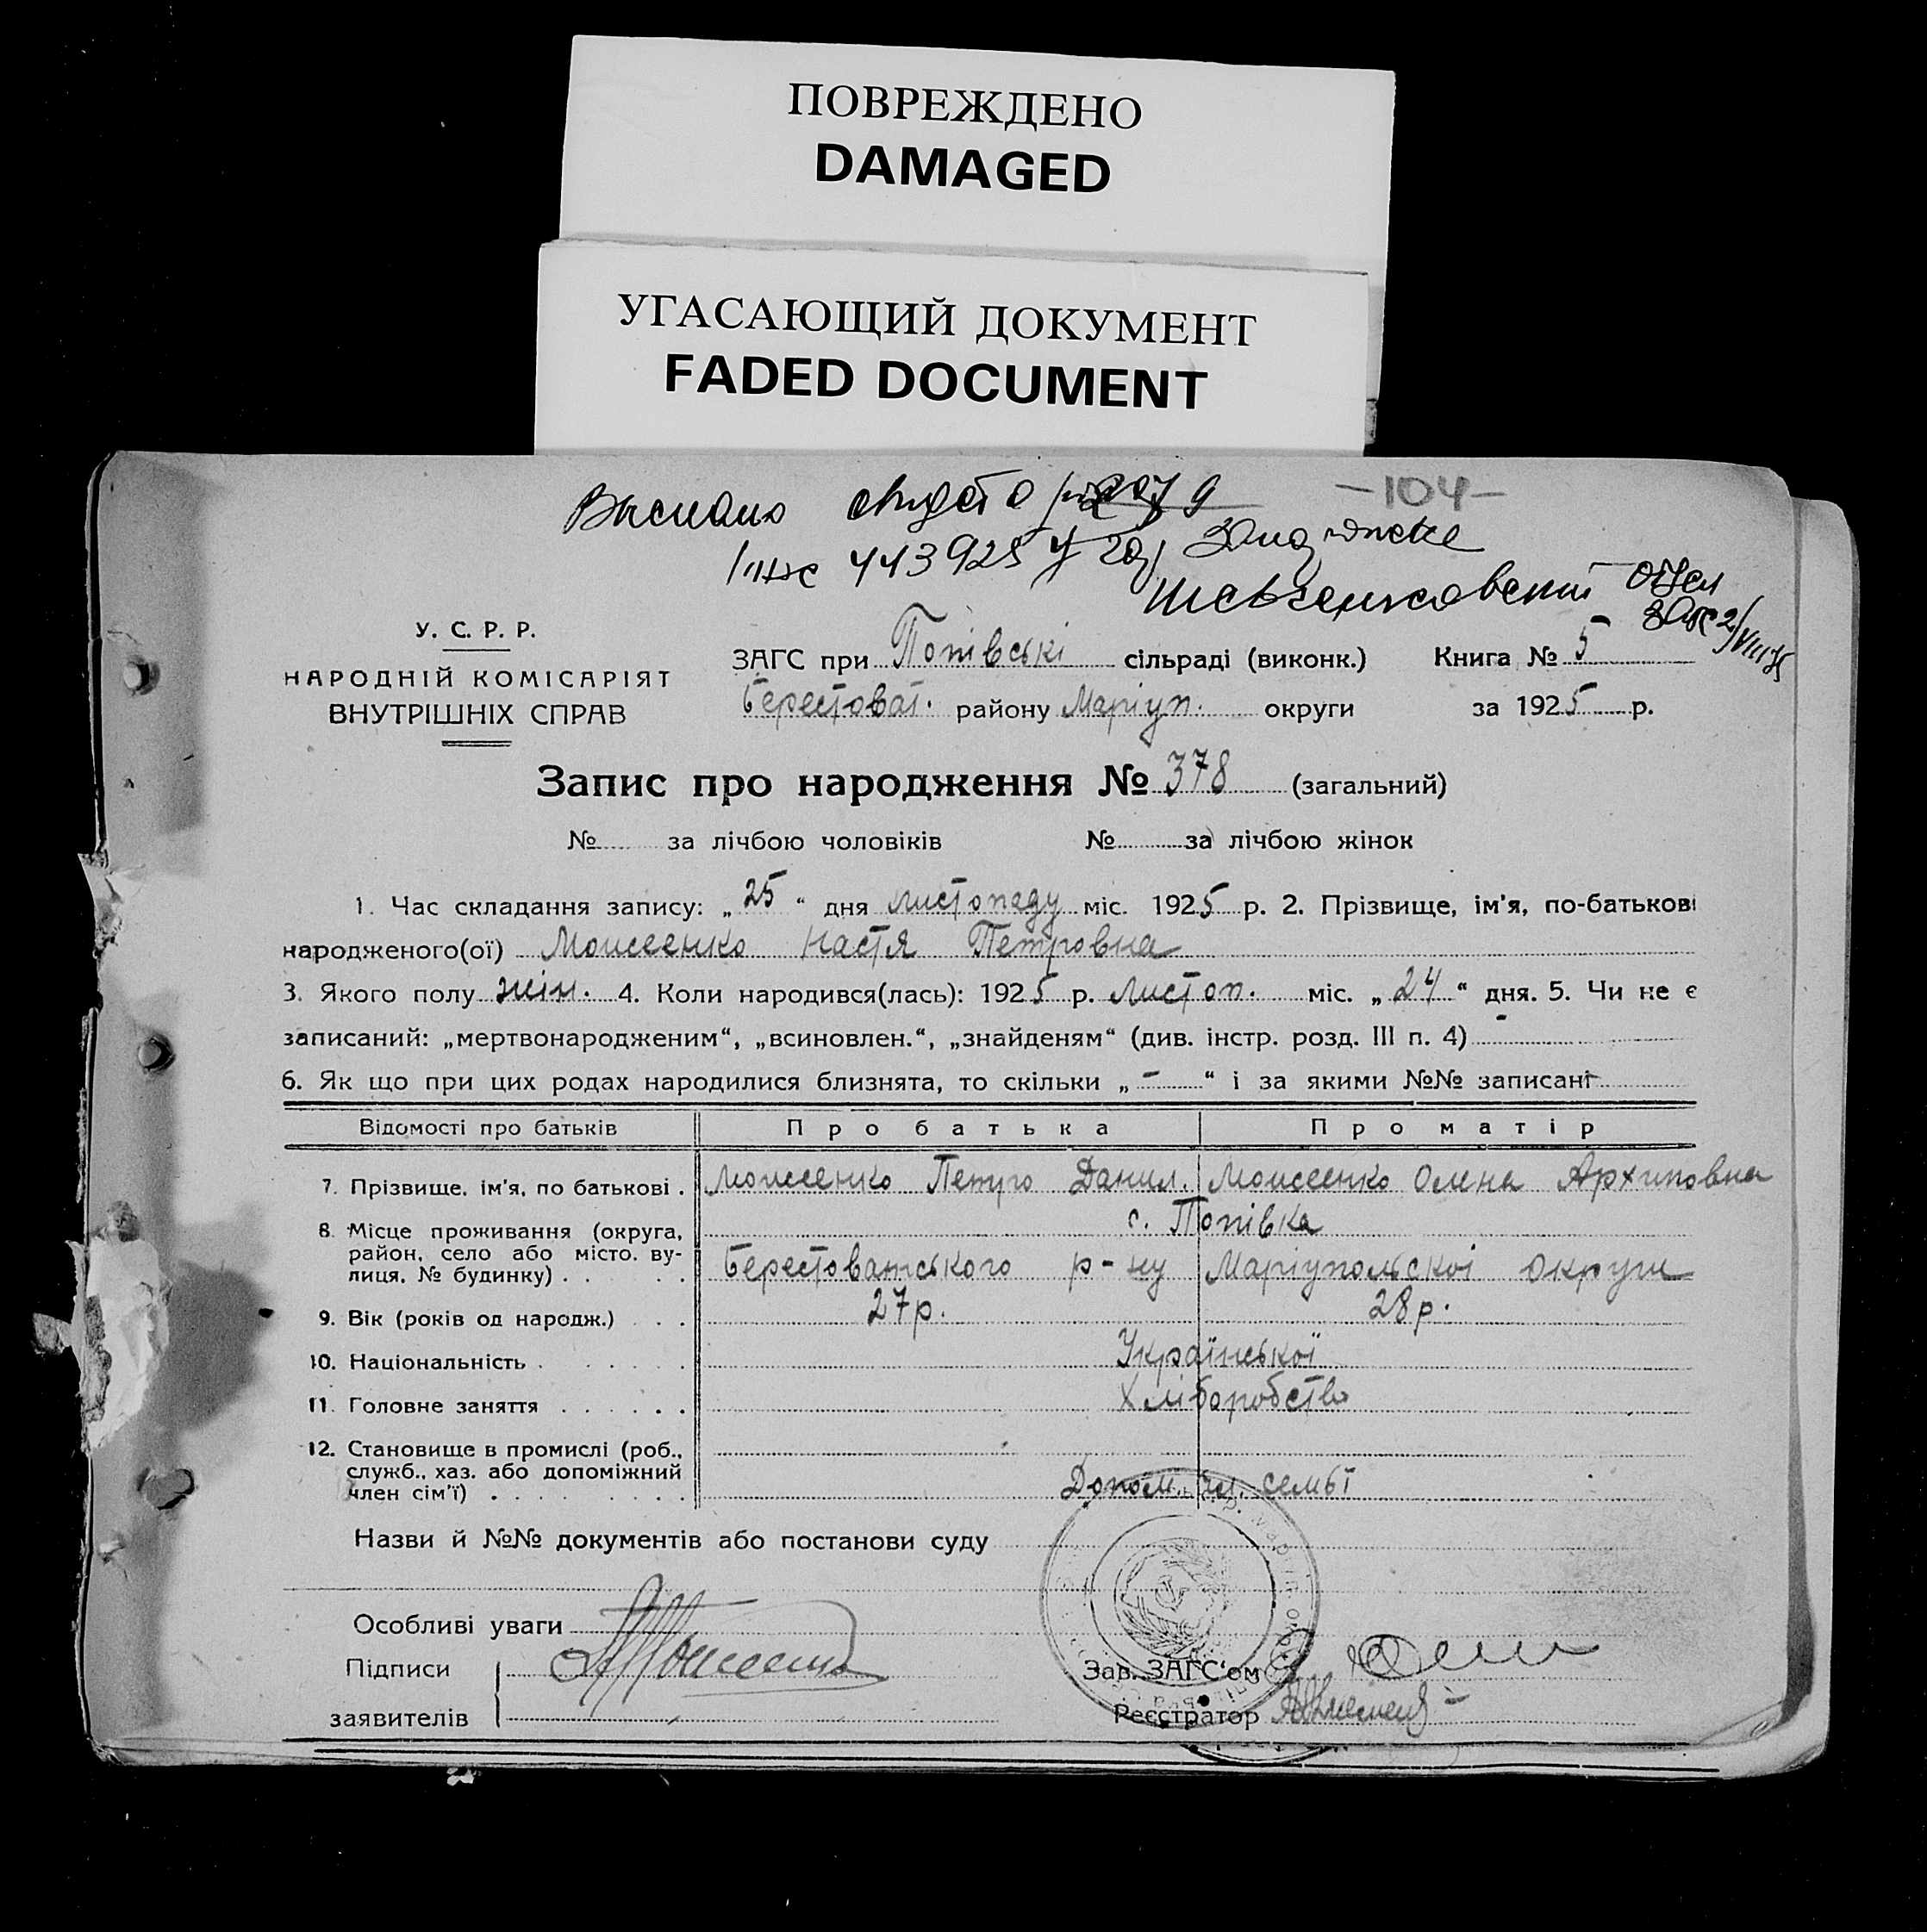 ПОВРЕЖДЕНО
DAMAGED
УГАСАЮЩИЙ ДОКУМЕНТ
FADED DOCUMENT
-104-
443925
Шевченковский отдел
У. С. Р. Р.
НАРОДНІЙ КОМІСАРІЯТ
ВНУТРІШНІХ СПРАВ
ЗАГС при Попівські сільраді (виконк.) Книга № 5
Берестоват. району Маріуп. округи за 1925 р.
Запис про народження № 378 (загальний)
№ за лічбою чоловіків № за лічбою жінок
1. Час складання запису: „25“ дня листопаду міс. 1925 р. 2. Прізвище, ім'я, по-батькові
народженого(ої) Моисеенко Настя Петровна
3. Якого полу жін. 4. Коли народився(лась): 1925 р. листоп. міс. „24“ дня. 5. Чи не є
записаний: „мертвонародженим“, „всиновлен.“, „знайденям“ (див. інстр. розд. III п. 4) -
6. Як що при цих родах народилися близнята, то скільки „-“ і за якими №№ записані -
Відомості про батьків Про батька Про матір
7. Прізвище, ім'я, по батькові . Моисеенко Петро Данил. Моисеенко Олена Архиповна
8. Місце проживання (округа, с. Попівка
район, село або місто, ву-
лиця, № будинку) . . . . Берестоватського р-ну Маріупольскоі округи
9. Вік (років од народж.) . . . 27 р. 28 р.
10. Національність . . . . . . Української
11. Головне заняття . . . . . . Хліборобство
12. Становище в промислі (роб.,
служб., хаз. або допоміжний
член сім'ї) . . . . . . . . Допом. чл. семьї
Назви й №№ документів або постанови суду
Особливі уваги
Підписи
заявителів
Зав. ЗАГС'ом
Реєстратор